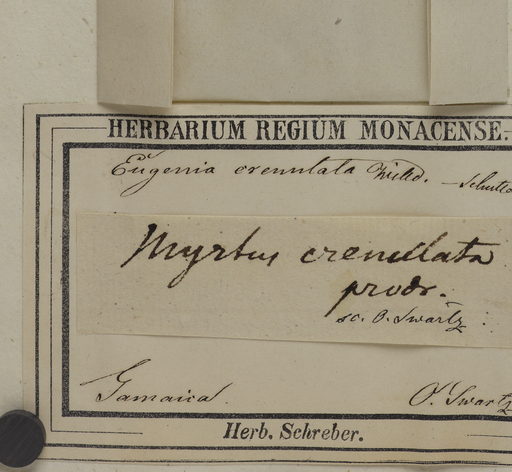 HERBARIUM REGIUM MONACENSE.
Eugenia crenulata Willd. —
Myrtus crenulata
prodr.
sc. O. Swartz
Jamaica. O. Swartz
Herb. Schreber.